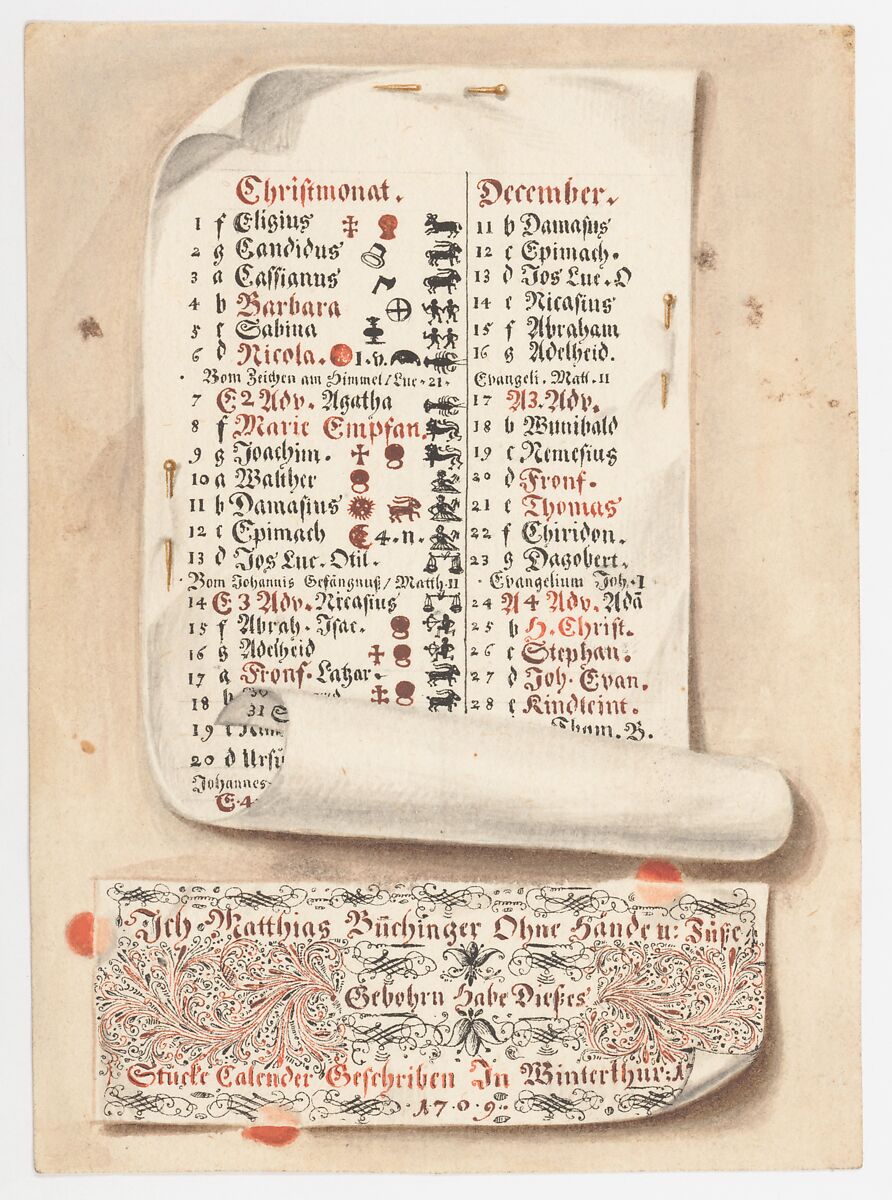 Christmonat.
1 f Eligius
2 g Candidus
3 a Cassianus
4 b Barbara
5 c Sabina
6 d Nicola. 1. v.
Vom Zeichen am Himmel / Luc. 21.
7 E 2 Adv. Agatha
8 f Marie Empfan.
9 g Joachim.
10 a Walther
11 b Damasius
12 c Epimach 4. n.
13 d Jos Luc. Otil.
Vom Johannis Gefängnuß / Matth. 11
14 E 3 Adv. Nicasius
15 f Abrah. Isac.
16 g Adelheid
17 a Fronf. Latzar.
18 b
19 c
20 d Ursu
Johannes
E. 4
31 S
December.
11 b Damasus
12 c Epimach.
13 d Jos Luc. O
14 e Nicasius
15 f Abraham
16 g Adelheid.
Evangeli. Matt. 11
17 A3. Adv.
18 b Wunibald
19 c Nemesius
20 d Fronf.
21 e Thomas
22 f Chiridon.
23 g Dagobert.
Evangelium Joh. 1
24 A 4 Adv. Adā
25 b H. Christ.
26 c Stephan.
27 d Joh. Evan.
28 e Kindleint.
Thom. B.
Ich Matthias Büchinger Ohne Hände u: Füße
Gebohrn Habe Dießes
Stucke Calender Geschriben In Winterthur:
1709